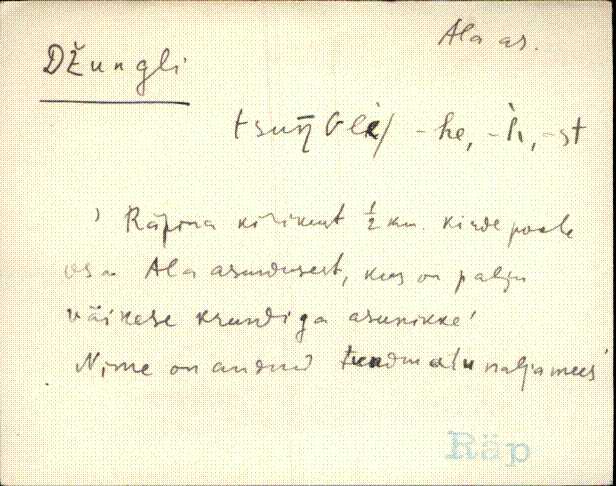 Ala as.
Džungli
tsuŋGli̬/ -he, -h, -st
' Räpina kirikust ½ km. kirde poole
osa Ala asundusest, kus on palju
väikese krundiga asunikke'
Nime on andnud tundmatu naljamees'
Räp